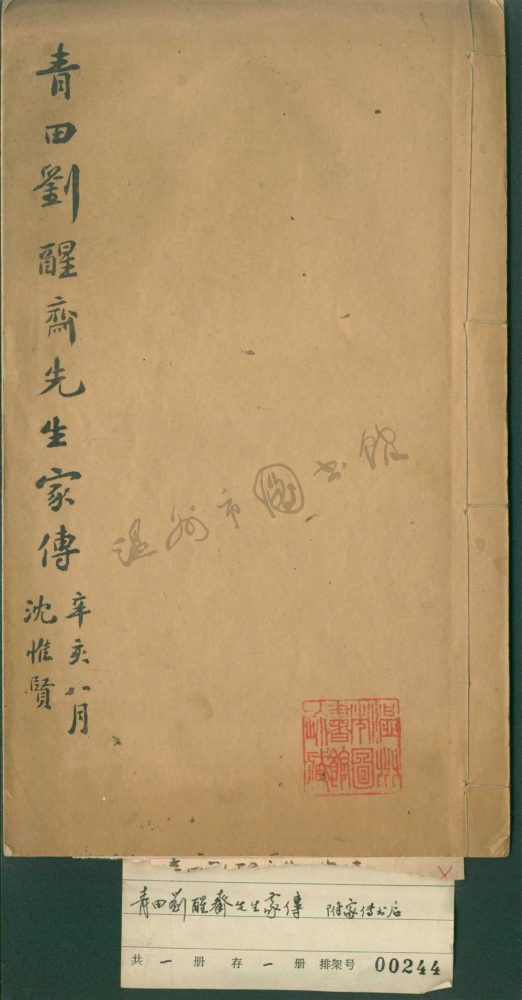 青田劉醒齋先生家傳
辛亥八月
沈惟賢
温州市图书馆
温州
市圖
書館
所藏
青田刘醒齋先生家傳 附家传书后
共一册存一册排架号 00244